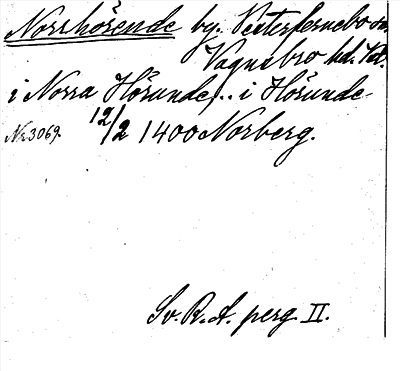 Norrhörende by. Vesterfernebo sn.
Vagnsbro hd. Vstl.
i Norra Hörunde, .. i Hörunde
Nr 3069. 12/2 1400 Norberg.
Sv. R. A. perg. II.